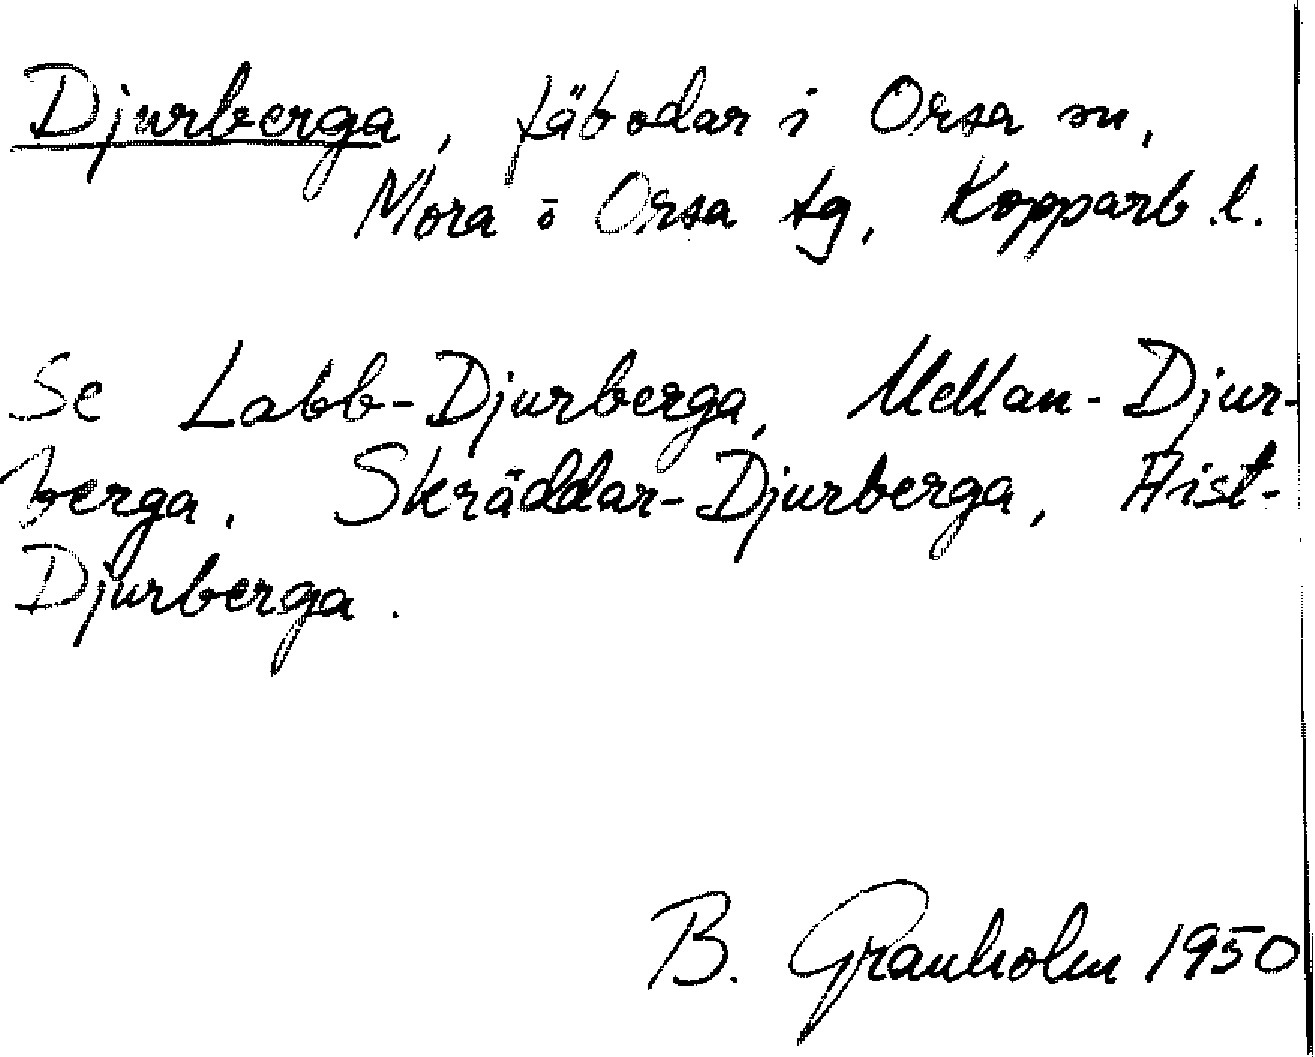 Djurberga, fäbodar i Orsa sn,
Mora o Orsa tg, Kopparb.l.
Se Labb-Djurberga, Mellan-Djur-
berga, Skräddar-Djurberga, Äist-
Djurberga.
B. Granholm 1950